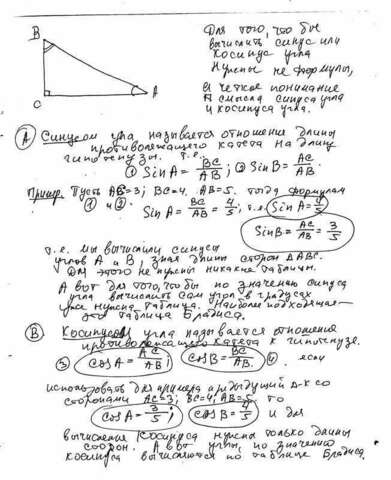 B
C
A
Для того, что бы
вычислить синус или
косинус угла
нужны не формулы,
а чёткое понимание
смысла синуса угла
и косинуса угла.
А Синусом угла называется отношение длины
противолежащего катета на длину
гипотенузы. т.е.
① Sin A = BC/AB ; ② Sin B = AC/AB
Пример. Пусть AC=3; BC=4, AB=5. тогда формулам
① и ② Sin A = BC/AB = 4/5; т.е. Sin A = 4/5
Sin B = AC/AB = 3/5
т.е. мы вычислили синусы
углов А и В, зная длины сторон ΔABC.
Для этого не нужны никакие таблицы.
А вот для того, что бы по значению синуса
угла вычислить сам угол в градусах
уже нужна таблица. Наиболее подходящая-
это таблица Брадиса.
В Косинусом угла называется отношения
противолежащего катета к гипотенузе.
③ cos A = AC/AB ; cos B = BC/AB. ④ если
использовать для примера предыдущий Δ-к со
сторонами AC=3; BC=4; AB=5, то
cos A = 3/5 ; cos B = 4/5 и для
вычисления косинуса нужны только длины
сторон. А вот углы, по значению
косинуса вычисляются по таблице Брадиса.